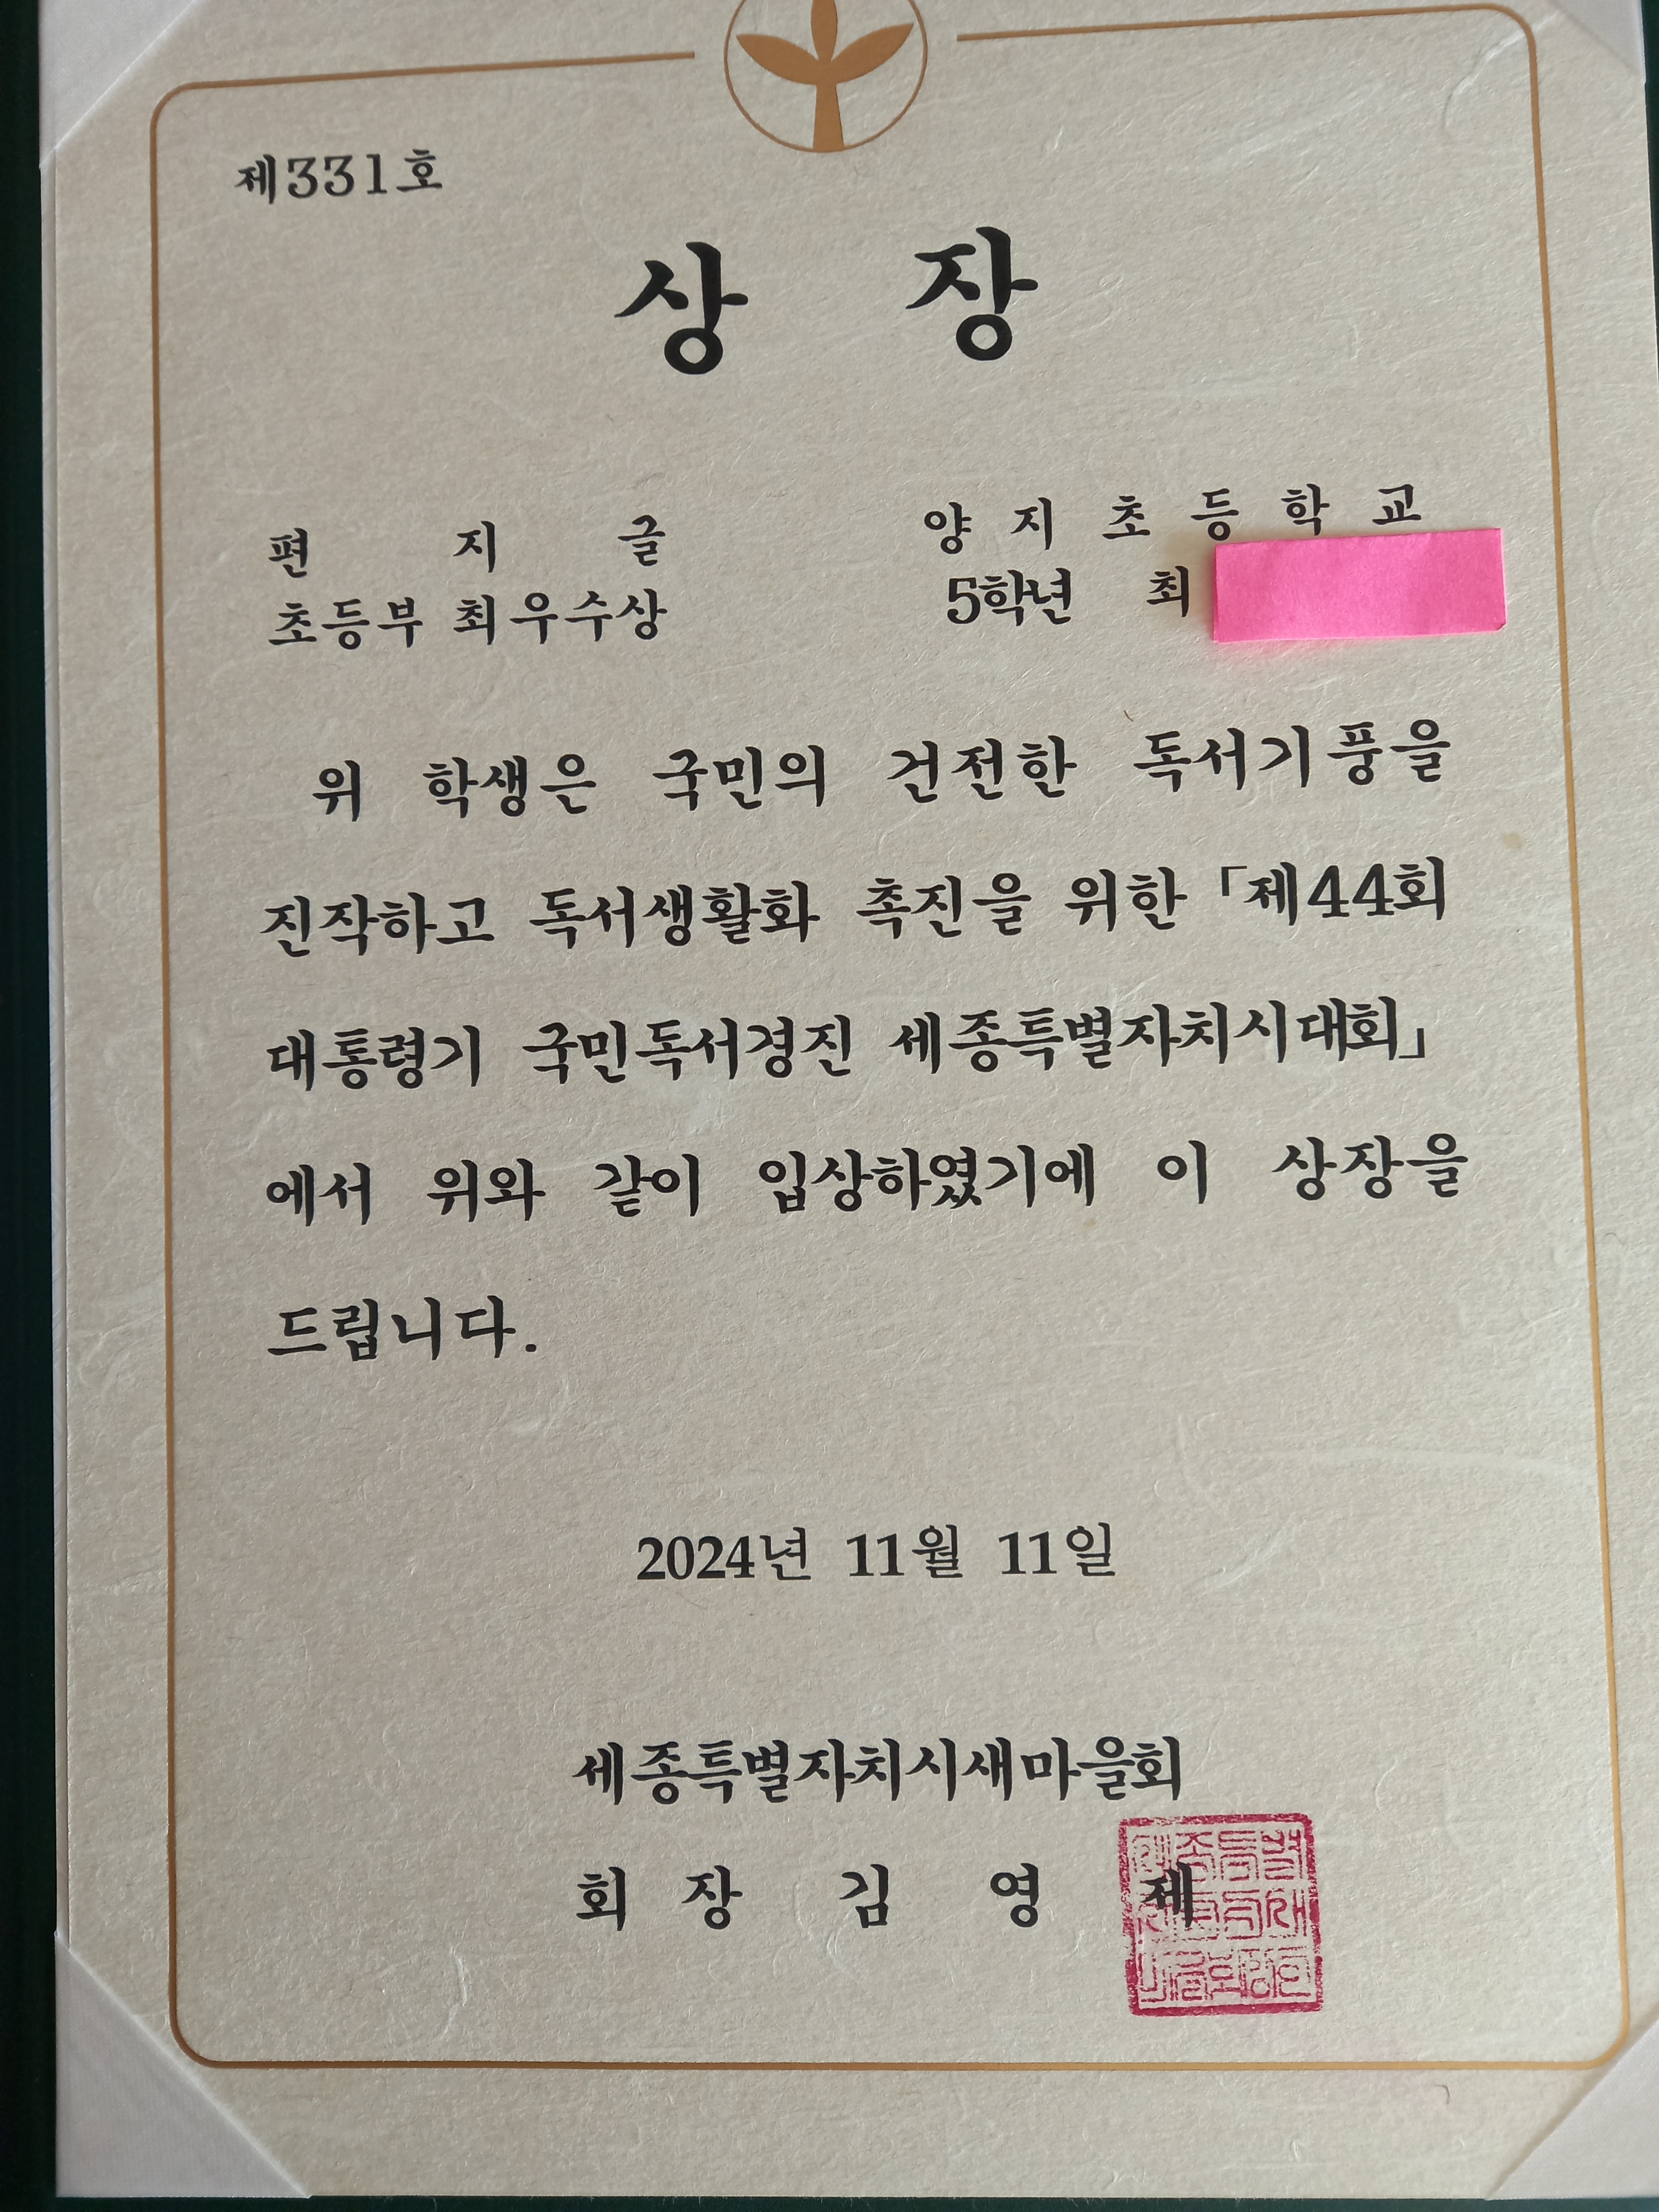 제331호
상 장
편 지 글
초등부 최우수상
양 지 초 등 학 교
5학년 최
위 학생은 국민의 건전한 독서기풍을
진작하고 독서생활화 촉진을 위한 「제44회
대통령기 국민독서경진 세종특별자치시대회」
에서 위와 같이 입상하였기에 이 상장을
드립니다.
2024년 11월 11일
세종특별자치시새마을회
회 장 김 영 제